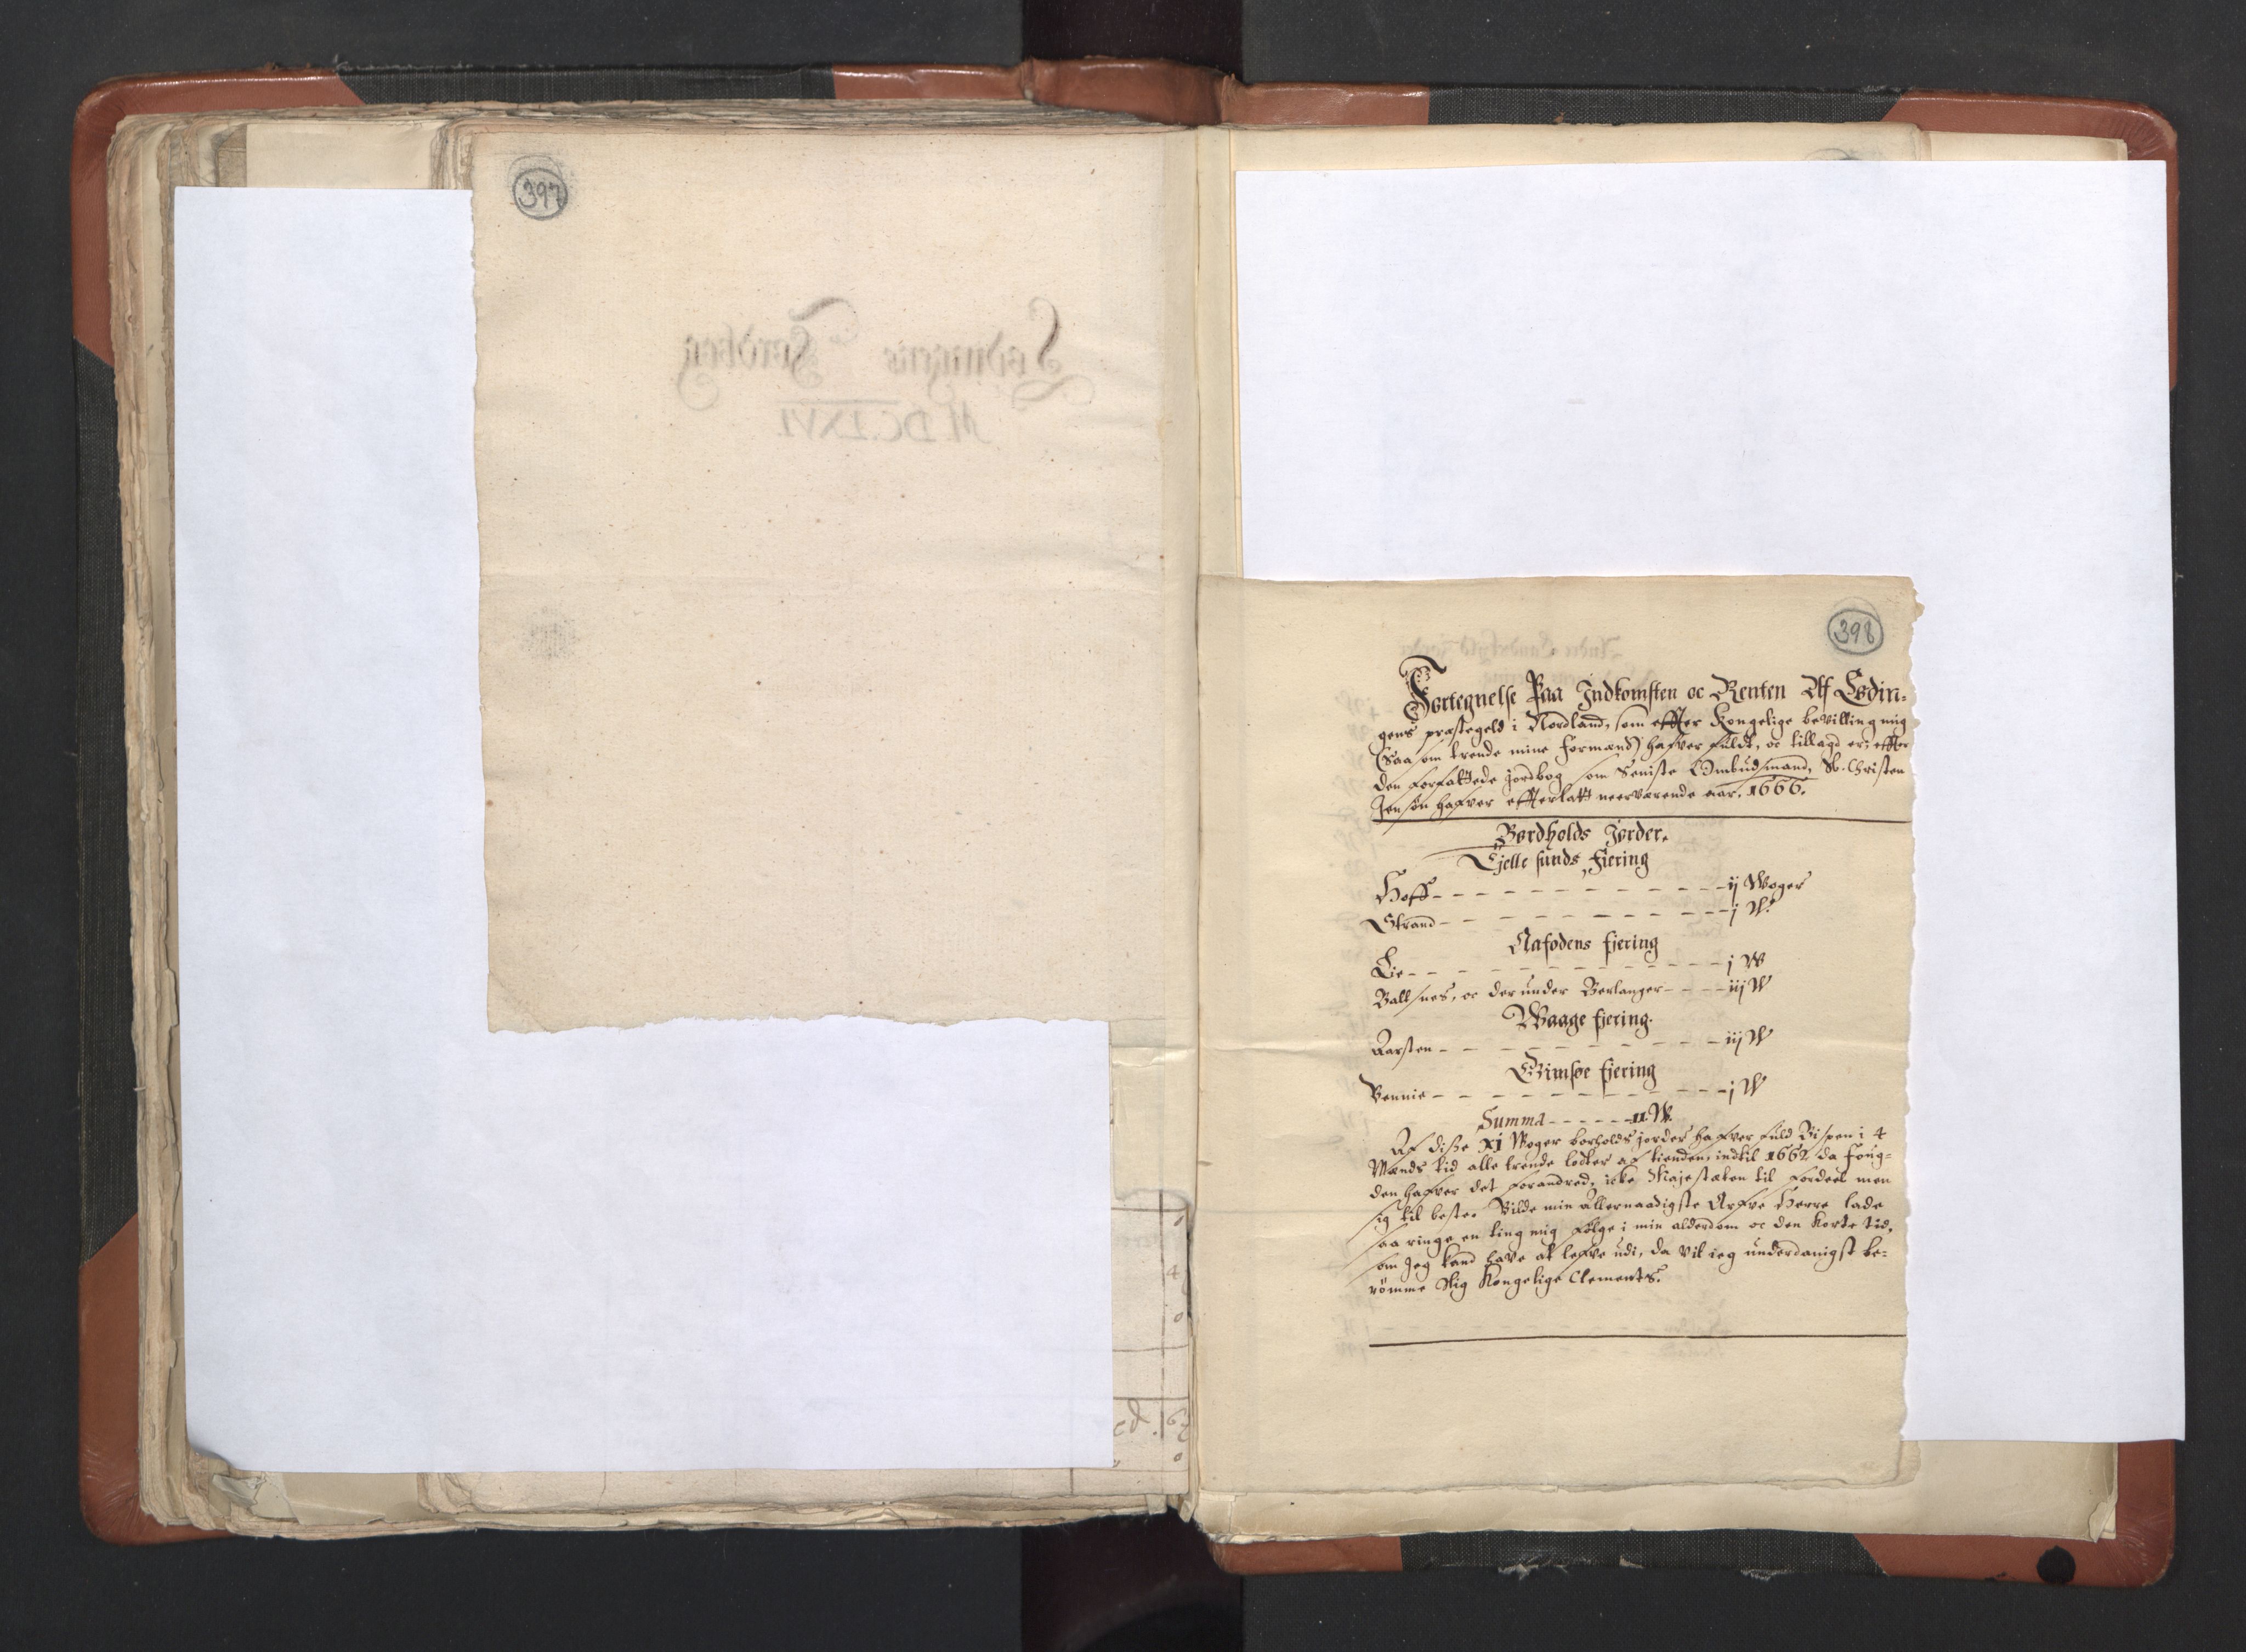 397
398
Fortegnelse Paa Indkomsten oc Renten Af Lödin-
gens præstegeld i Nordland, som effter Kongelige bevilling mig
(saa som trende mine formænd) hafver fuldt, oc tillagd er; effter
den forfattede jordbog som Seniste Ombudsmand, Sl. Christen
Jensøn hafver efferlatt neerværende aar. 1666.
Bordholds Jorder.
Tjelle sunds fiering
Hoff - - - ij Woger
Strand - - - j W.
Aafodens fiering
Lie - - - j W
Ballsnes, oc der under Berlanger - - - iij W
Waage fiering.
Aarsten - - - iij W
Gimsøe fiering
Vennie - - - j W
Summa - - - 11. W.
Af disse XI Woger borholds jorder hafver fuld Bispen i 4
Mænds tid alle trende lodter af tienden, indtil 1662 da foug-
den hafver det forandred, icke Majestæten til fordeel men
sig til beste. Vilde min Allernaadigste Arfve Herre lade
saa ringe en ting mig følge i min alderdom oc den korte tid,
som Jeg kand have at lefve udi, da vil ieg underdanigst be-
römme Slig Kongelige Clements.